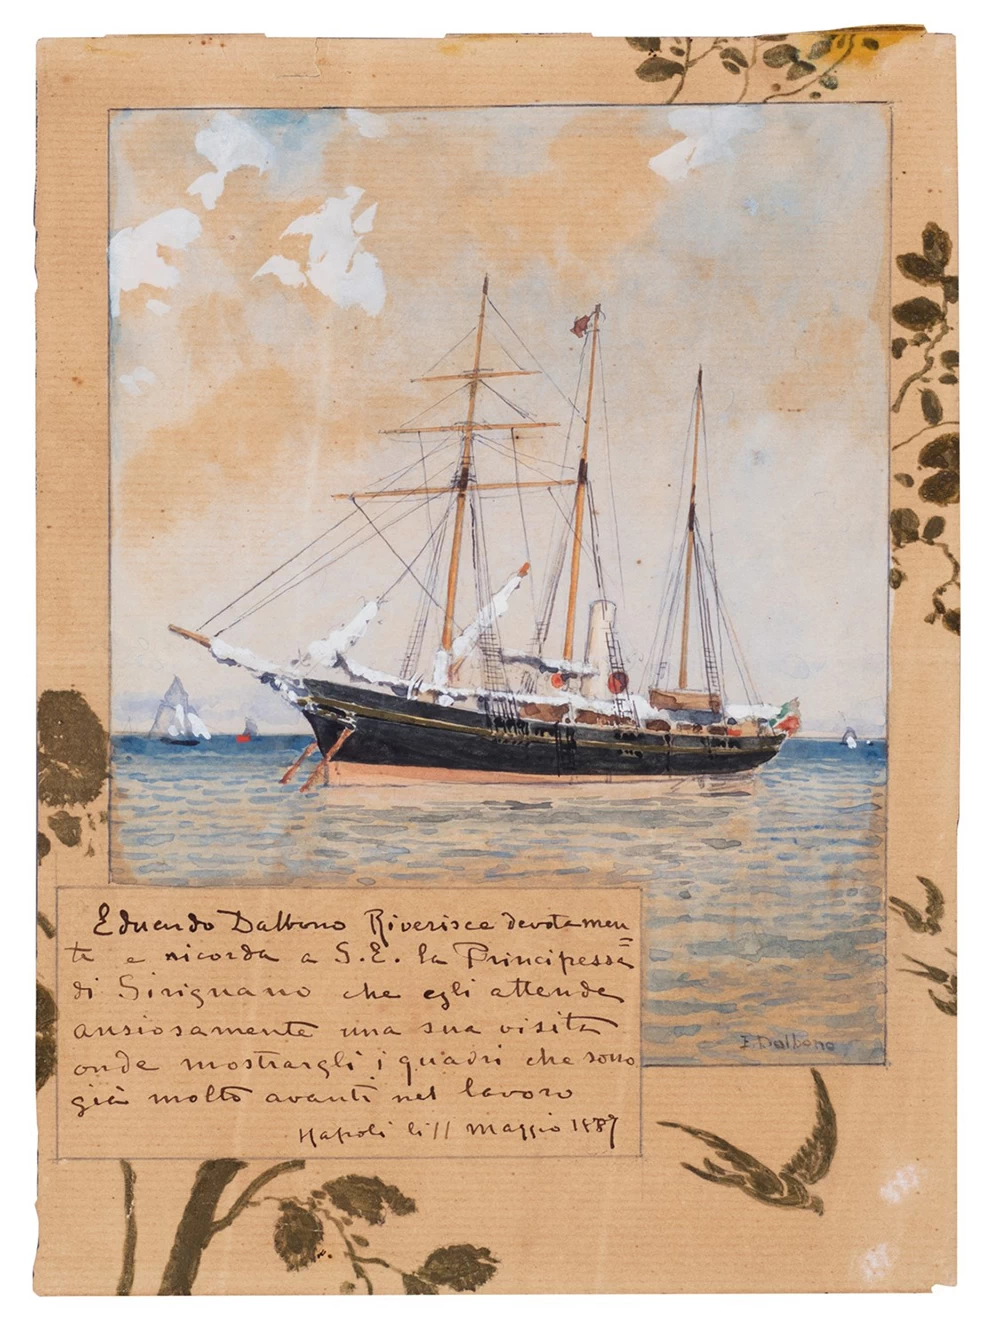 Eduardo Dalbono Riverisce devotamen=
te e ricorda a S.E. la Principessa
di Sirignano che egli attende
ansiosamente una sua visita
onde mostrargli i quadri che sono
già molto avanti nel lavoro
Napoli li 11 Maggio 1887
E. Dalbono